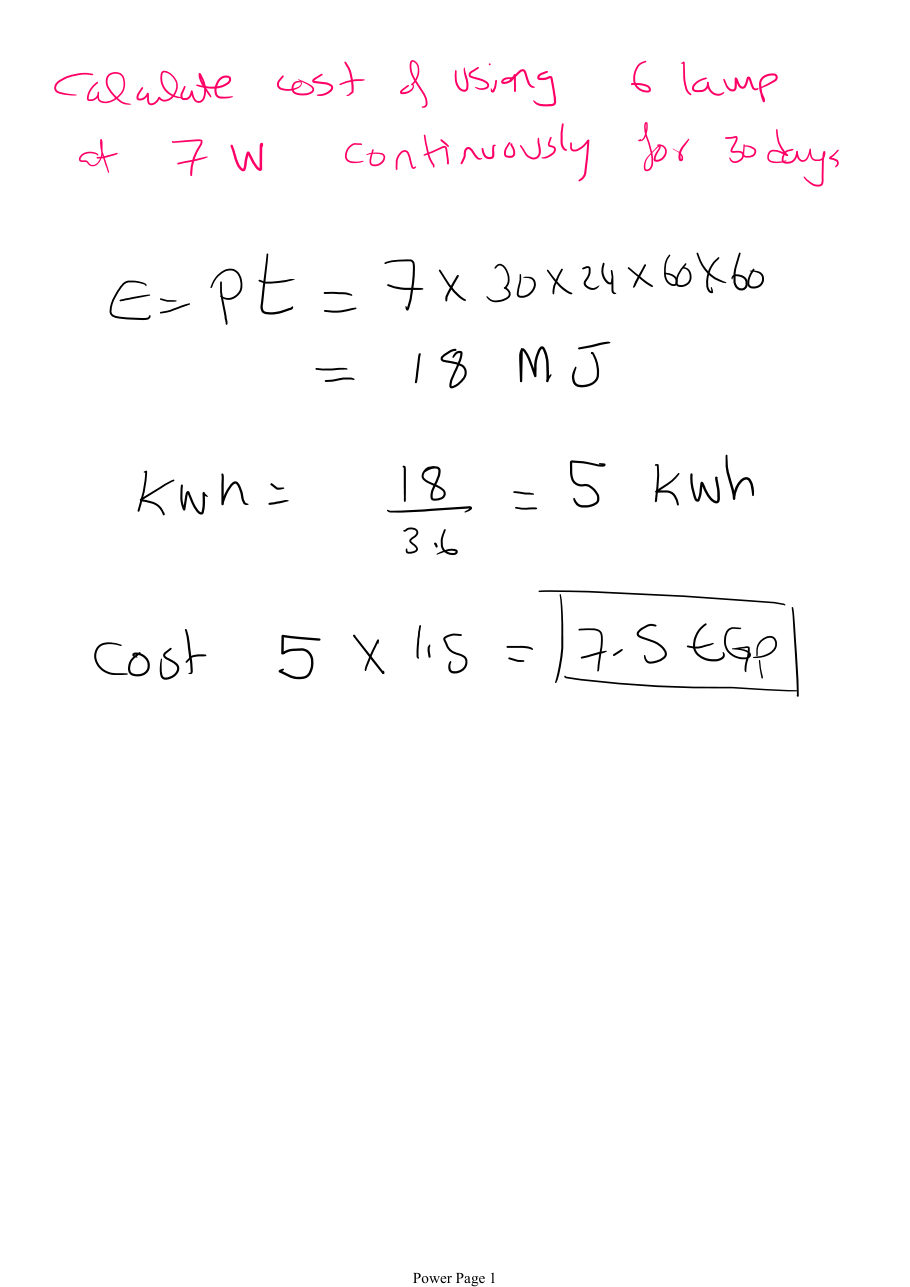 Calculate cost of using 6 lamp
at 7 W continuously for 30 days
E = Pt = 7 × 30 × 24 × 60 × 60
= 18 MJ
Kwh = 18/3.6 = 5 kwh
Cost 5 × 1.5 = 7.5 EGP
Power Page 1